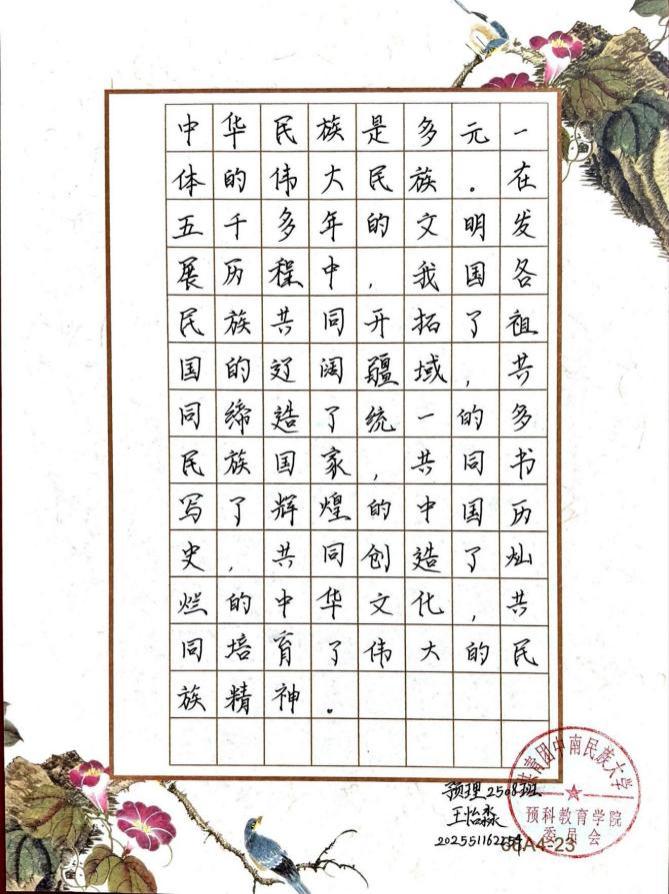 中华民族是多元一
体的伟大民族。在
五千多年的文明发
展历程中，我国各
民族共同开拓了祖
国的辽阔疆域，共
同缔造了统一的多
民族国家，共同书
写了辉煌的中国历
史，共同创造了灿
烂的中华文化，共
同培育了伟大的民
族精神。
预理2508班
王怡淼
共青团中南民族大学
预科教育学院
委员会
66A4-23